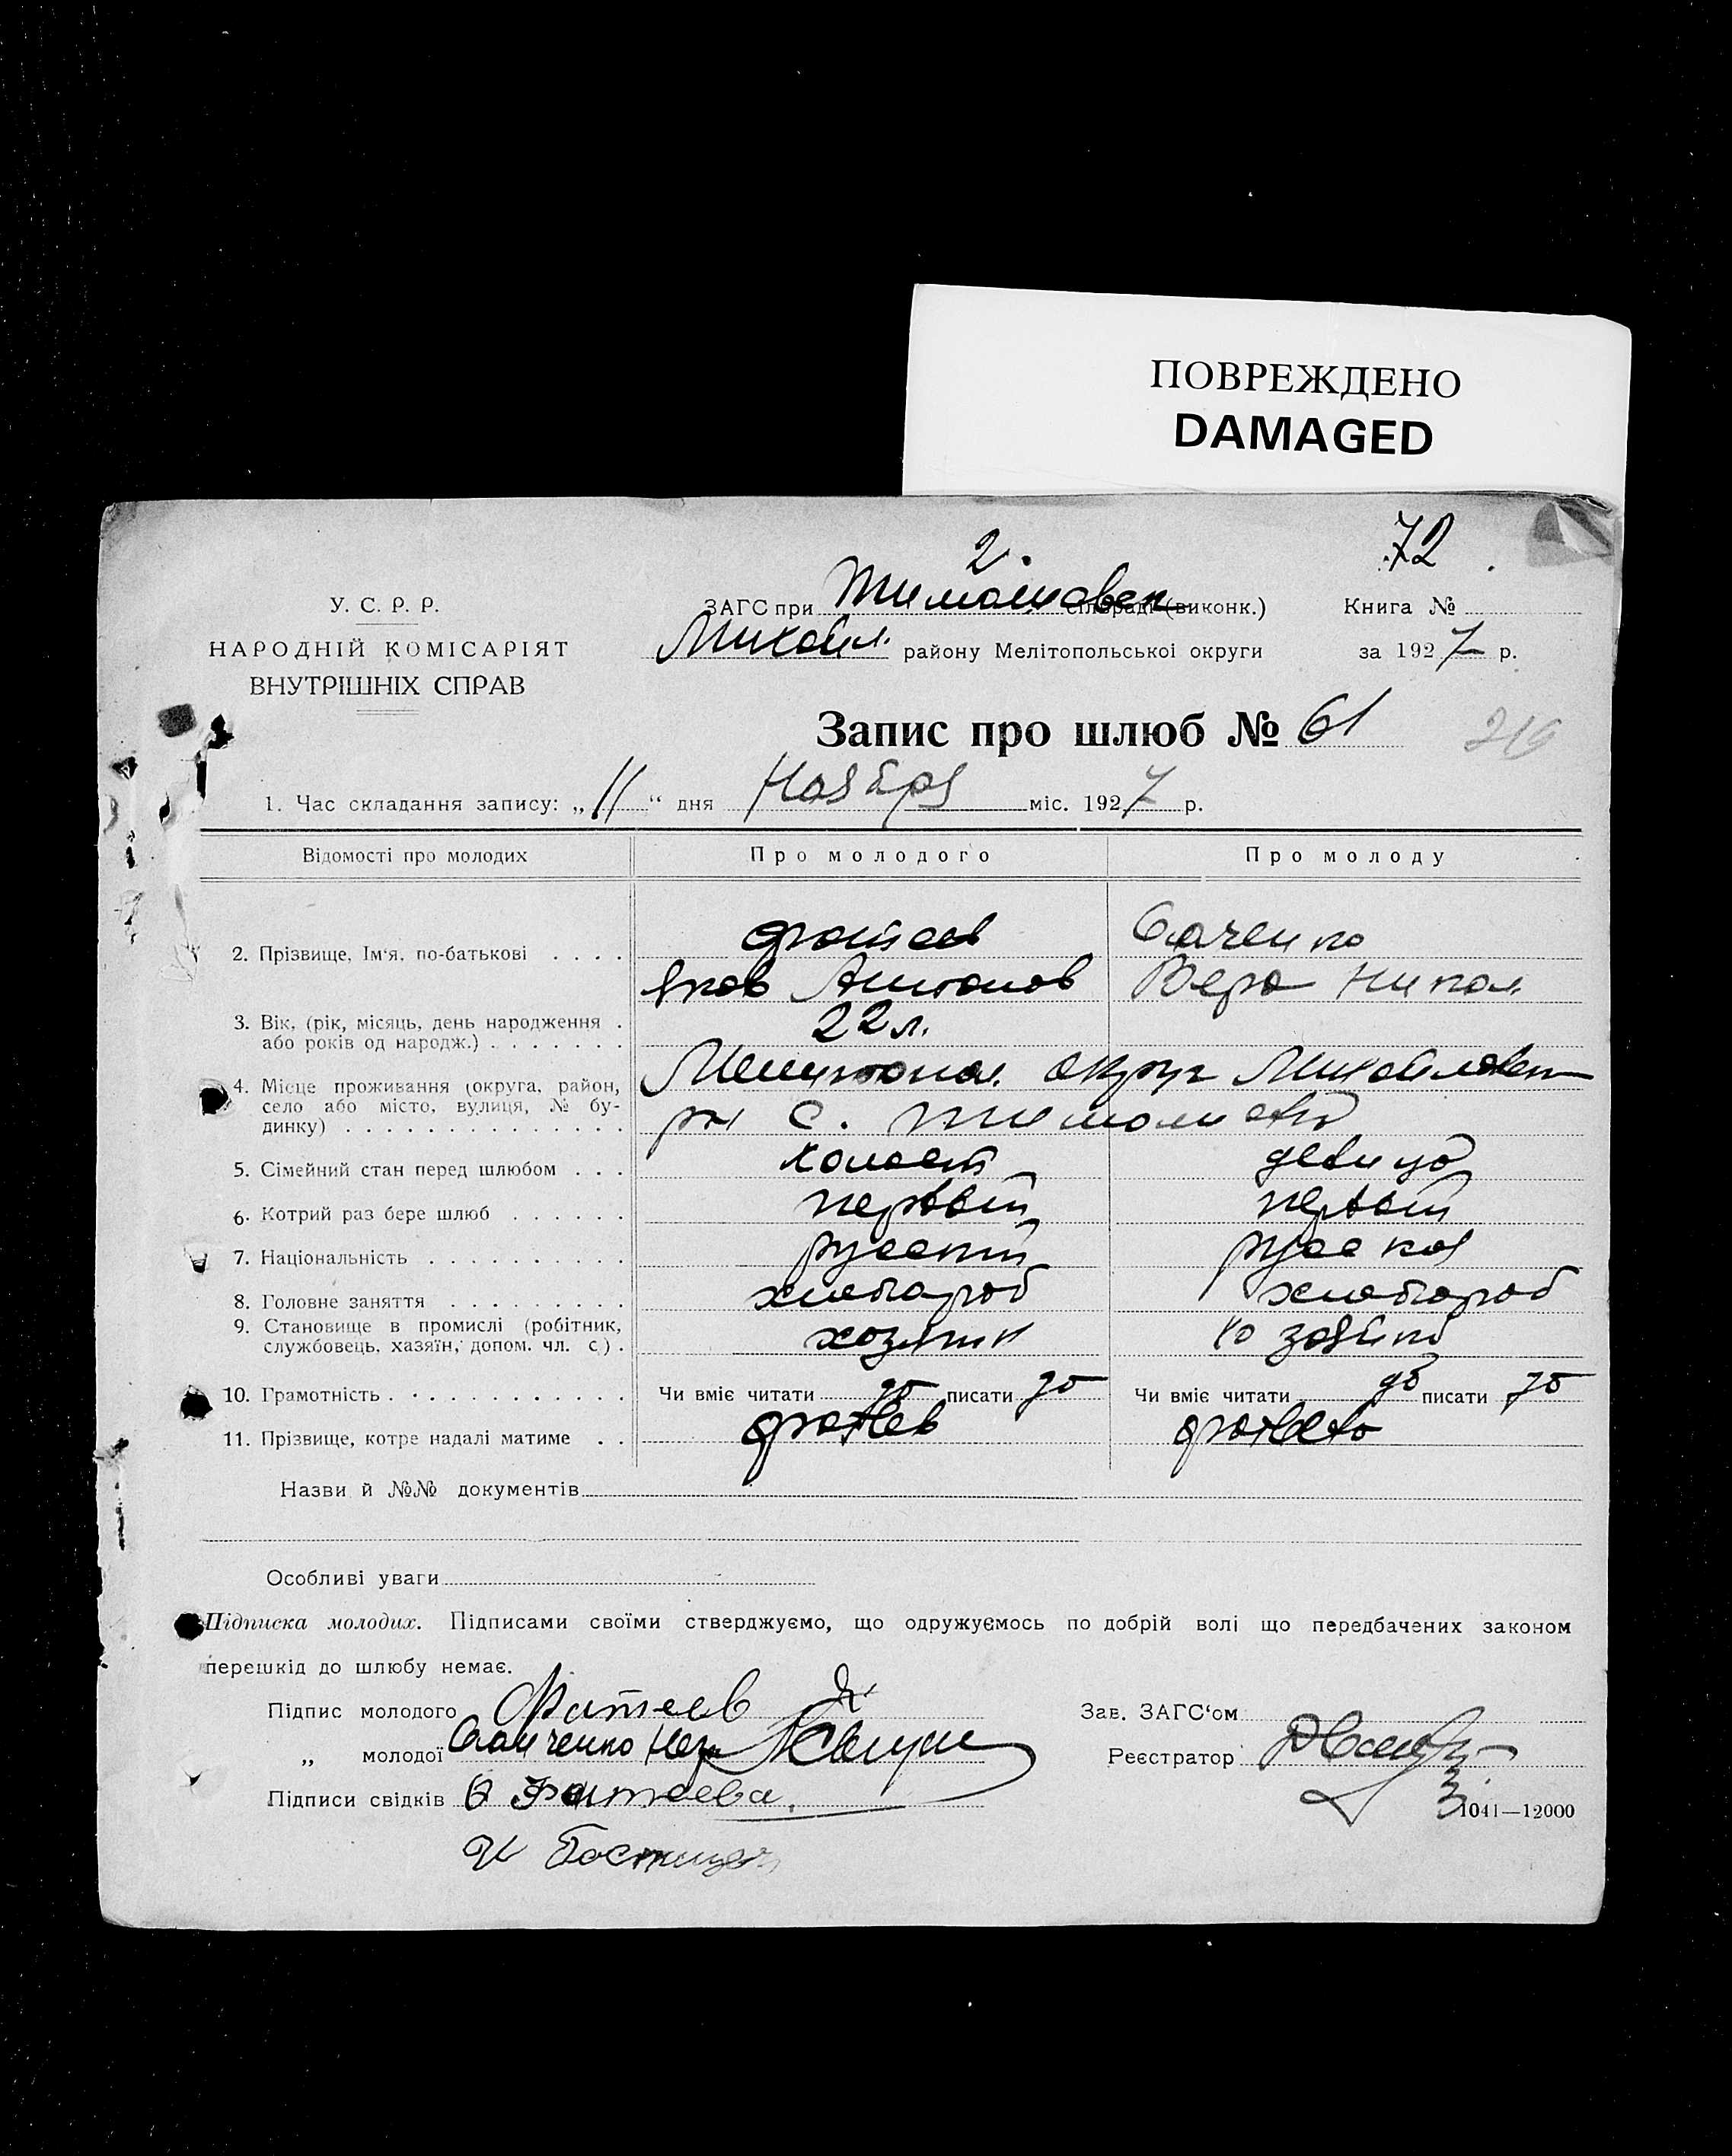 ПОВРЕЖДЕНО
DAMAGED
72
2.
У. С. Р. Р.
ЗАГС при Тимошовск сільраді (виконк.)
Книга №
НАРОДНІЙ КОМІСАРІЯТ
Михайл. району Мелітопольської округи
за 1927 р.
ВНУТРІШНІХ СПРАВ
Запис про шлюб № 61
216
1. Час складання запису: „11“ дня Ноября міс. 1927 р.
Відомості про молодих
Про молодого
Про молоду
2. Прізвище, Ім'я, по-батькові . . . .
Фатеев
Яков Антонов
Вера Никол.
3. Вік, (рік, місяць, день народження .
або років од народж.) . . . . . . .
22 л.
4. Місце проживання (округа, район,
село або місто, вулиця, № бу-
динку) . . . . . . . . . . . . . .
Мелитопол. округ Михайловск
рн с. Тимошовка
5. Сімейний стан перед шлюбом . . .
холост
девица
6. Котрий раз бере шлюб . . . . . .
первый
первый
7. Національність . . . . . . . . . .
русский
русская
8. Головне заняття . . . . . . . . .
хлебороб
хлебороб
9. Становище в промислі (робітник,
службовець, хазяїн, допом. чл. с.) .
хозяин
хозяйка
10. Грамотність . . . . . . . . . . .
Чи вміє читати да писати да
Чи вміє читати да писати да
11. Прізвище, котре надалі матиме . .
Фатеев
Фатеева
Назви й №№ документів
Особливі уваги
Підписка молодих. Підписами своїми стверджуємо, що одружуємось по добрій волі що передбачених законом
перешкід до шлюбу немає.
Підпис молодого Фатеев Я
Зав. ЗАГС'ом
„ молодої
Реєстратор
Підписи свідків Фатеева
1041—12000